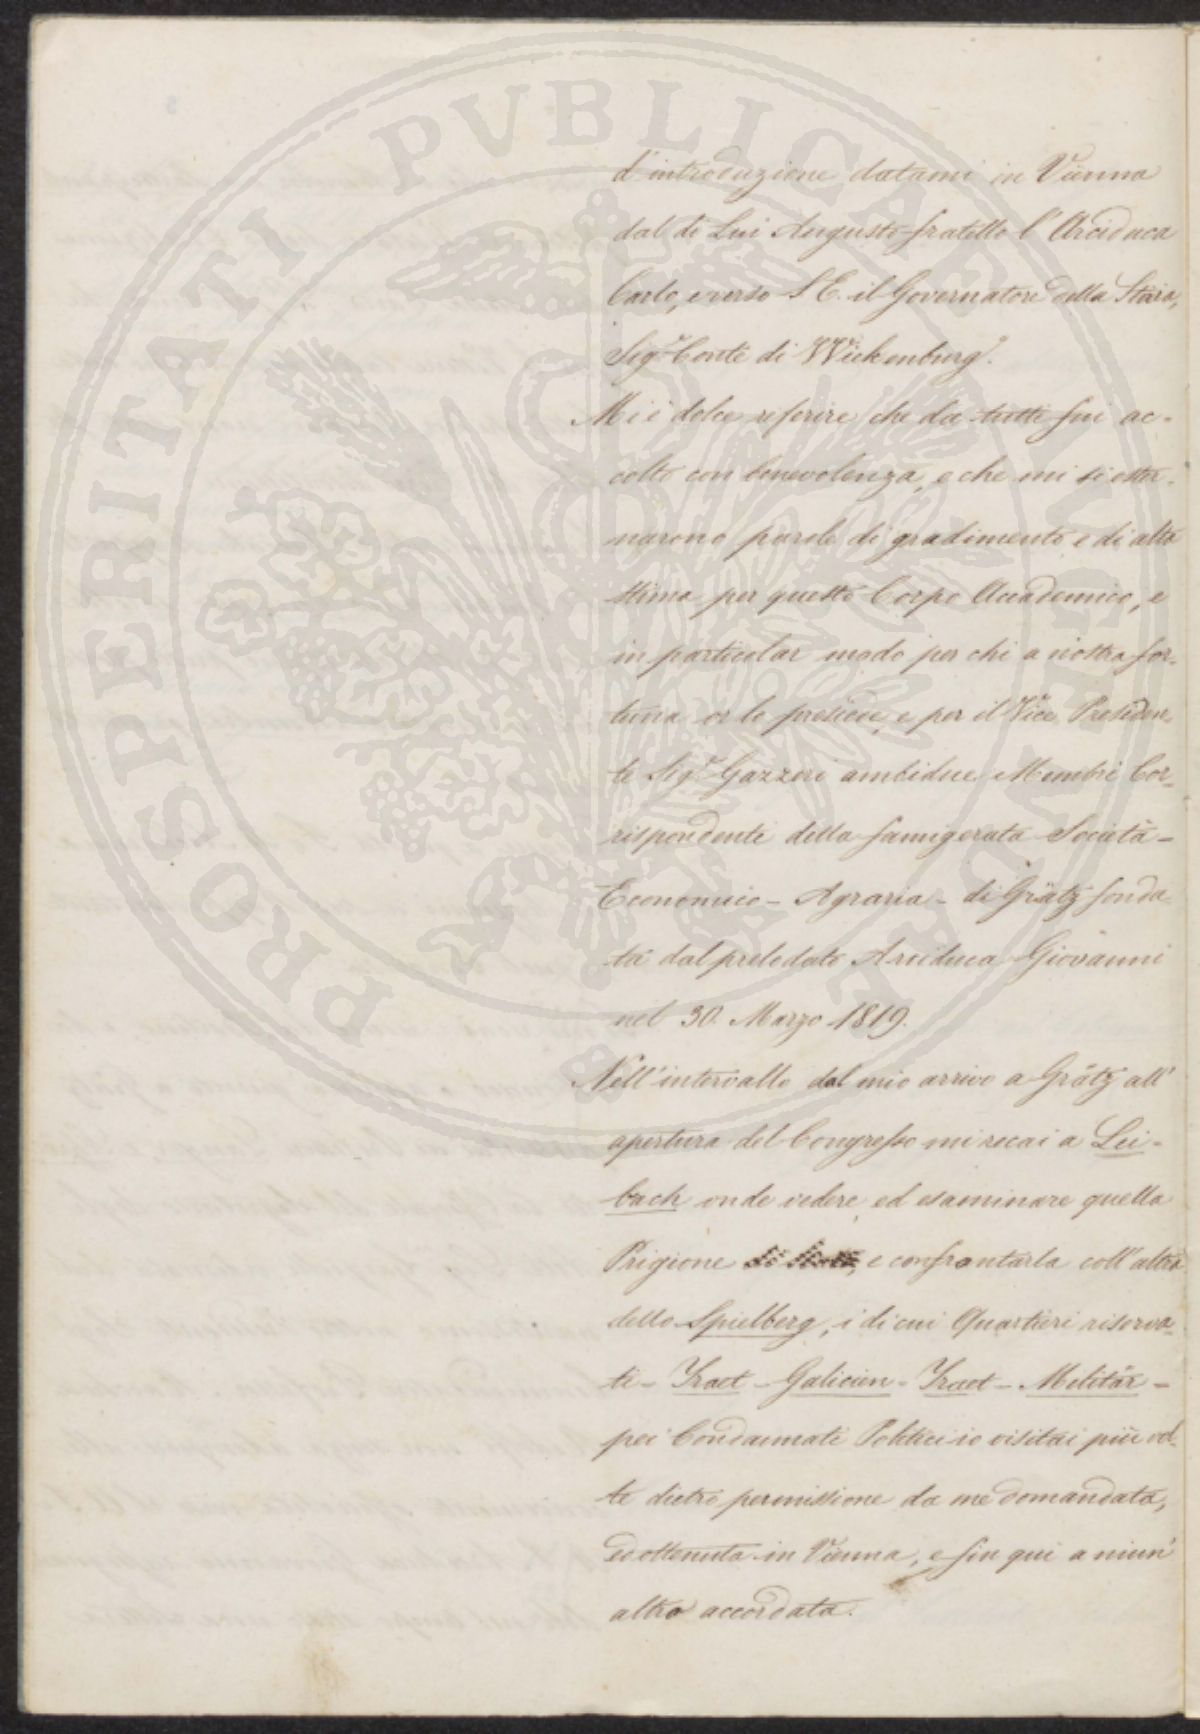 PROSPERITATI PVBLICAE AVGENDAE
d'introduzione datami in Vienna
dal di Lui Augusto fratello l'Arciduca
Carlo, e verso S. E. il Governatore della Stiria,
Sig.r Conte di Wickenburg.
Mi è dolce referire che da tutti fui ac-
colto con benevolenza, e che mi si ester-
narono parole di gradimento e di alta
stima per questo Corpo Accademico, e
in particolar modo per chi a nostra for-
tuna or lo presiede, e per il Vice Presiden-
te Sig.r Gazzeri ambidue Membri Cor-
rispondenti della famigerata Società -
Economico - Agraria - di Grätz fonda-
ta dal prelodato Arciduca Giovanni
nel 30. Marzo 1819.
Nell'intervallo dal mio arrivo a Grätz all'
apertura del Congresso mi recai a Lei-
bach onde vedere, ed esaminare quella
Prigione, e confrontarla coll'altra
dello Spielberg, i di cui Quartieri riserva-
ti - Tract - Galicien - Tract - Militär -
pei Condannati Politici io visitai più vol-
te dietro permissione da me domandata,
ed ottenuta in Vienna, e fin qui a niun'
altro accordata.